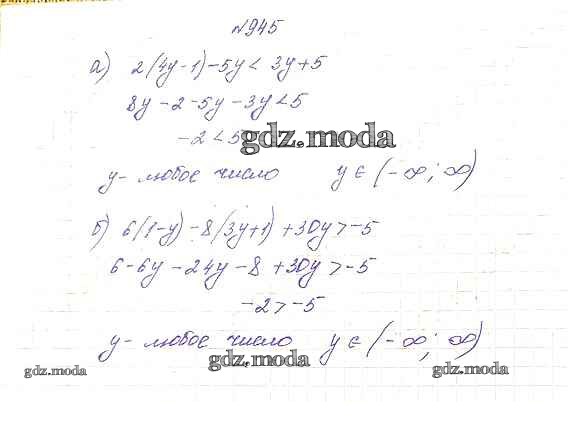 №945
а) 2(4y-1)-5y< 3y+5
8y-2-5y-3y<5
-2<5
gdz.moda
y- любое число y∈(-∞; ∞)
б) 6(1-y)-8(3y+1)+30y>-5
6-6y-24y-8+30y>-5
-2>-5
y- любое число y∈(-∞; ∞)
gdz.moda gdz.moda gdz.moda